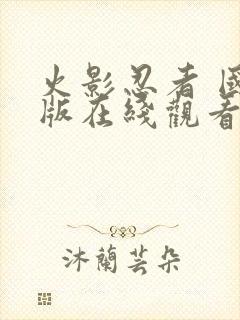 火影忍者 國
版在綫觀看
沐蘭芸朵